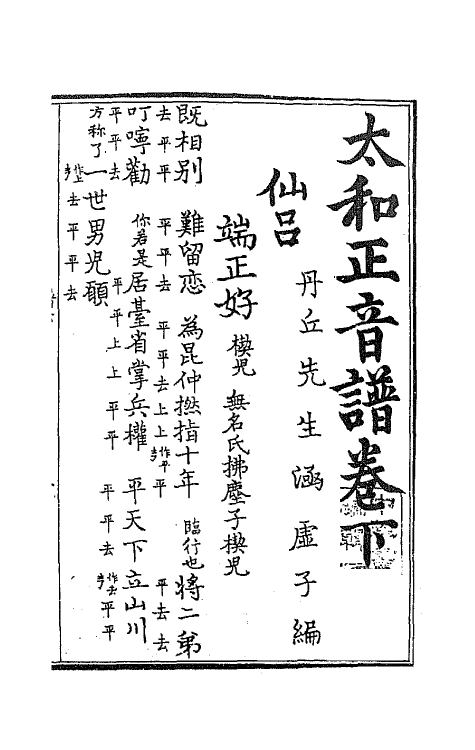 太和正音譜卷下
丹丘先生涵虛子編
仙呂
端正好 楔児 無名氏拂塵子楔児
既相别 難留恋 為昆仲撚指十年 臨行也将二弟
去平平 平平去 平平去上上作平平 平去去
叮嚀勸 你若是居臺省掌兵權 平天下立山川
平平去 平平上上平平 平平去作去平平
方称了一世男児願
作上去平平去